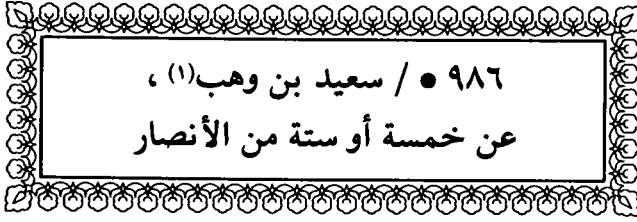 ٩٨٦ ● / سعيد بن وهب(١) ،
عن خمسة أو ستة من الأنصار